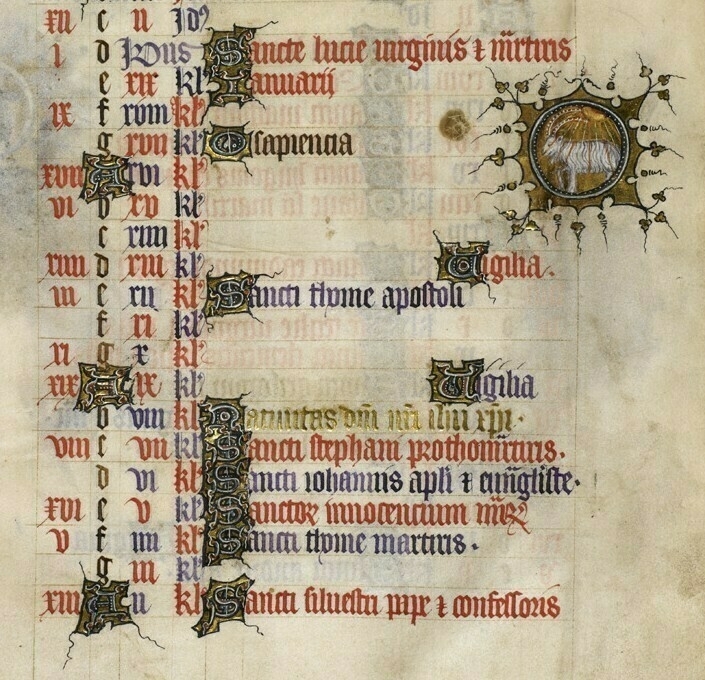 xii c ii Idꝰ
i d Idus Sancte lucie uirginis ⁊ mr̄tiris
e xix kl' Ianuarij
ix f xviii kl'
g xvii kl' O sapiencia
xvii A xvi kl'
vi b xv kl'
c xiiii kl'
xiiii d xiii kl' Uigilia.
iii e xii kl' Sancti thome apostoli
f xi kl'
xi g x kl'
xix A ix kl' Uigilia
b viii kl' Natiuitas dn̄i nr̄i ihū xp̄i.
viii c vii kl' Sancti stephani prothomr̄tiris.
d vi kl' Sancti iohannis apl̄i ⁊ euu̅gliste.
xvi e v kl' Sanctoꝝ innocencium mr̄ꝝ
v f iiii kl' Sancti thome martiris.
g iii kl'
xiii A ii kl' Sancti siluestri pape ⁊ confessoris